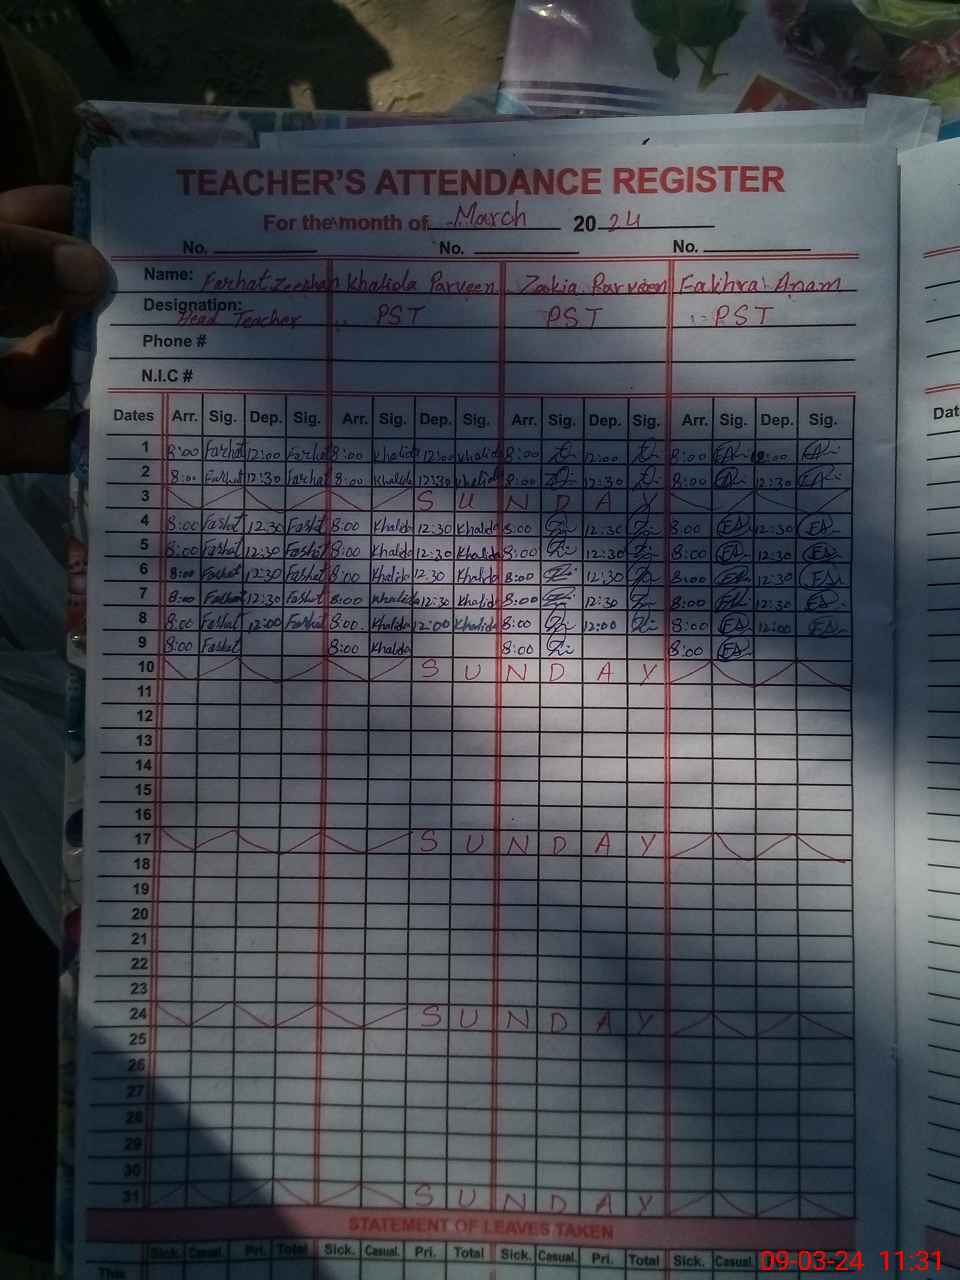 TEACHER'S ATTENDANCE REGISTER
For the month of March 2024
No. No. No.
Name: Farhat Zeeshan Khalida Parveen Zakia Parveen Fakhra Anam
Designation: Head Teacher PST PST PST
Phone #
N.I.C #
Dates Arr. Sig. Dep. Sig. Arr. Sig. Dep. Sig. Arr. Sig. Dep. Sig. Arr. Sig. Dep. Sig.
1 8:00 Farhat 12:00 Farhat 8:00 Khalida 12:00 Khalida 8:00 12:00 8:00 FA 12:00 FA
2 8:00 Farhat 12:30 Farhat 8:00 Khalida 12:30 Khalida 8:00 12:30 8:00 FA 12:30 FA
3 SUNDAY
4 8:00 Farhat 12:30 Farhat 8:00 Khalida 12:30 Khalida 8:00 12:30 8:00 FA 12:30 FA
5 8:00 Farhat 12:30 Farhat 8:00 Khalida 12:30 Khalida 8:00 12:30 8:00 FA 12:30 FA
6 8:00 Farhat 12:30 Farhat 8:00 Khalida 12:30 Khalida 8:00 12:30 8:00 FA 12:30 FA
7 8:00 Farhat 12:30 Farhat 8:00 Khalida 12:30 Khalida 8:00 12:30 8:00 FA 12:30 FA
8 8:00 Farhat 12:00 Farhat 8:00 Khalida 12:00 Khalida 8:00 12:00 8:00 FA 12:00 FA
9 8:00 Farhat 8:00 Khalida 8:00 8:00 FA
10 SUNDAY
11
12
13
14
15
16
17 SUNDAY
18
19
20
21
22
23
24 SUNDAY
25
26
27
28
29
30
31 SUNDAY
STATEMENT OF LEAVES TAKEN
Sick. Casual. Pri. Total Sick. Casual. Pri. Total Sick. Casual. Pri. Total Sick. Casual.
This
Dat
09-03-24 11:31